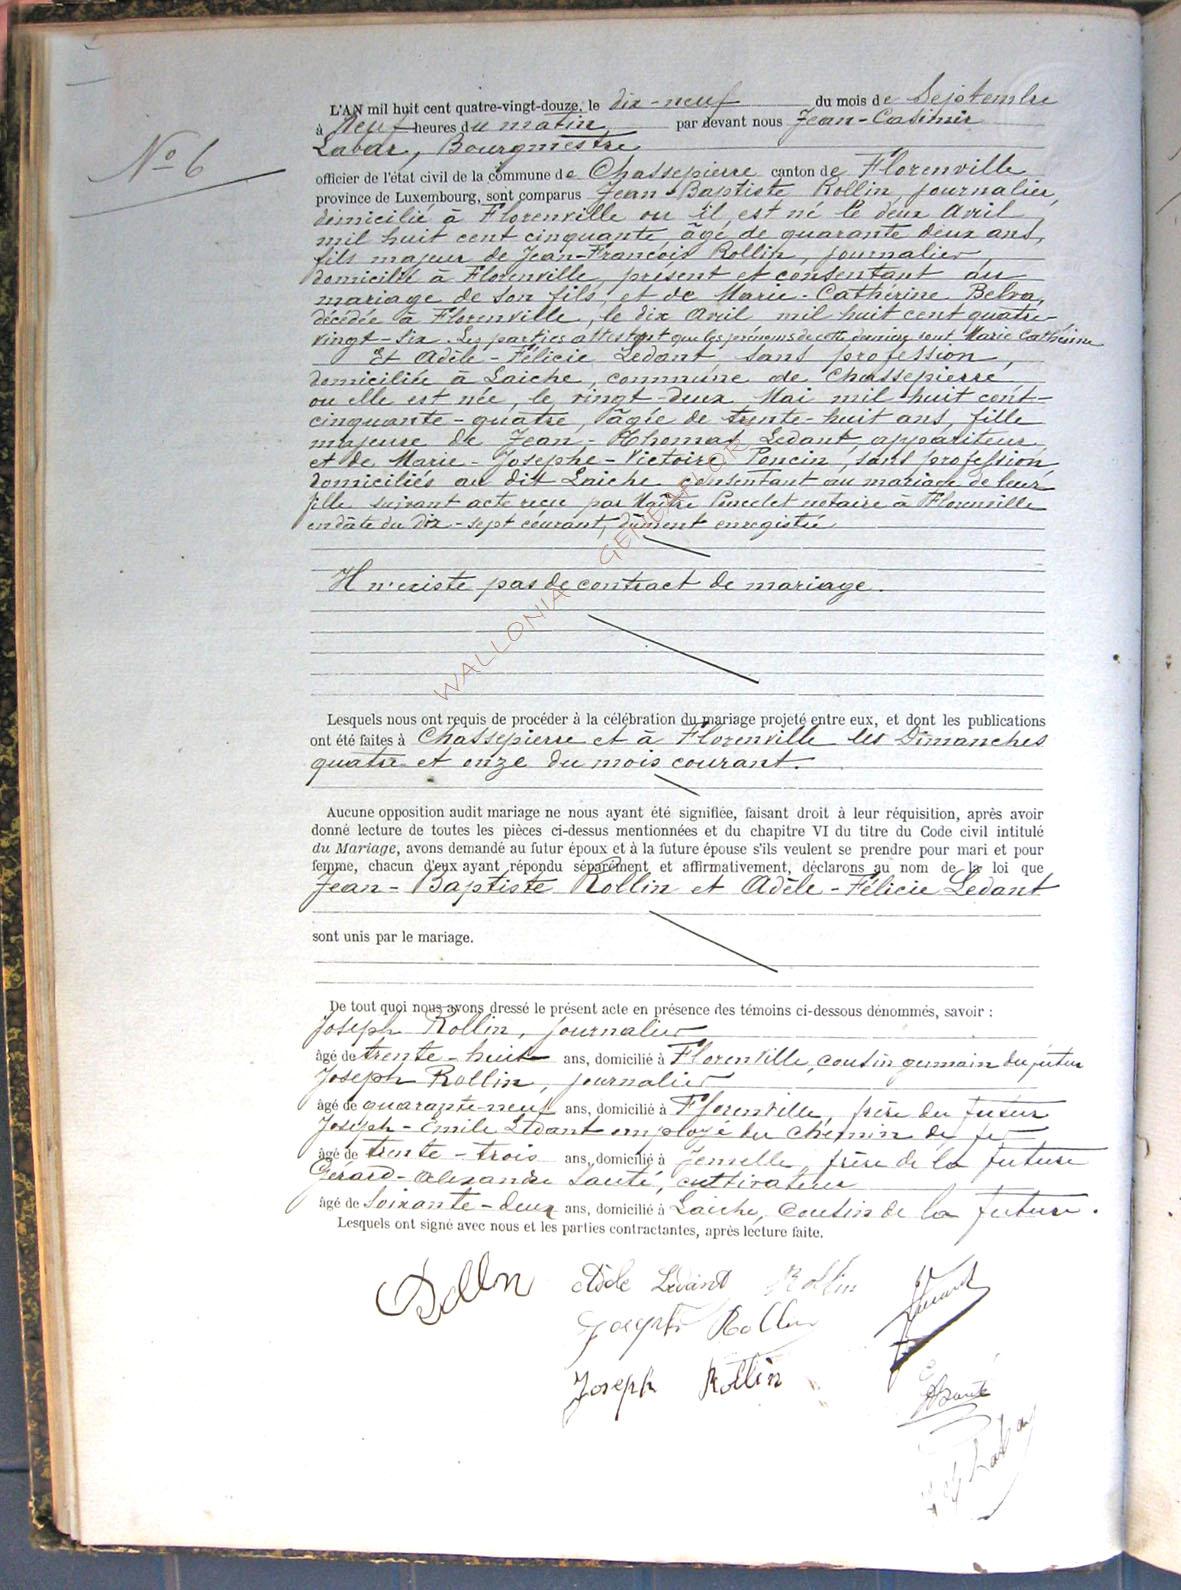 No 6
L'AN mil huit cent quatre-vingt-douze, le dix-neuf du mois de Septembre
à Neuf heures du matin, par devant nous Jean-Casimir
Labar, Bourgmestre
officier de l'état civil de la commune de Chassepierre canton de Florenville
province de Luxembourg, sont comparus Jean-Baptiste Rollin, journalier,
domicilié à Florenville ou il est né le deux Avril
mil huit cent cinquante, âgé de quarante deux ans,
fils majeur de Jean-François Rollin, journalier,
domicilié à Florenville, présent et consentant au
mariage de son fils, et de Marie-Cathérine Belva,
décédée à Florenville, le dix Avril mil huit cent quatre-
vingt-six. Les parties attestent que les prénoms de cette dernière sont Marie Cathérine
Et Adèle-Félicie Ledant, sans profession,
domiciliée à Laiche, commune de Chassepierre
ou elle est née, le vingt-deux Mai mil huit cent-
cinquante-quatre, âgée de trente-huit ans, fille
majeure de Jean-Thomas Ledant, appariteur
et de Marie-Josephe-Victoire Poncin, sans profession,
domiciliés au dit Laiche, consentant au mariage de leur
fille suivant acte reçu par Maître Poncelet notaire à Florenville
en date du dix-sept courant, dûment enregistré
Il n'existe pas de contract de mariage.
WALLONIA GENEAFLOR
Lesquels nous ont requis de procéder à la célébration du mariage projeté entre eux, et dont les publications
ont été faites à Chassepierre et à Florenville les Dimanches
quatre et onze du mois courant.
Aucune opposition audit mariage ne nous ayant été signifiée, faisant droit à leur réquisition, après avoir
donné lecture de toutes les pièces ci-dessus mentionnées et du chapitre VI du titre du Code civil intitulé
du Mariage, avons demandé au futur époux et à la future épouse s'ils veulent se prendre pour mari et pour
femme, chacun d'eux ayant répondu séparément et affirmativement, déclarons au nom de la loi que
Jean-Baptiste Rollin et Adèle-Félicie Ledant
sont unis par le mariage.
De tout quoi nous avons dressé le présent acte en présence des témoins ci-dessous dénommés, savoir :
Joseph Rollin, journalier
âgé de trente-huit ans, domicilié à Florenville, cousin germain du futur
Joseph Rollin, journalier
âgé de quarante-neuf ans, domicilié à Florenville, frère du futur
Joseph-Emile Ledant employé du chemin de fer
âgé de trente-trois ans, domicilié à Jemelle, frère de la future
Gérard-Alexandre Santé, cultivateur
âgé de Soixante-deux ans, domicilié à Laiche, cousin de la future.
Lesquels ont signé avec nous et les parties contractantes, après lecture faite.
Rollin Adèle Ledant Rollin
Joseph Rollin
Joseph Rollin